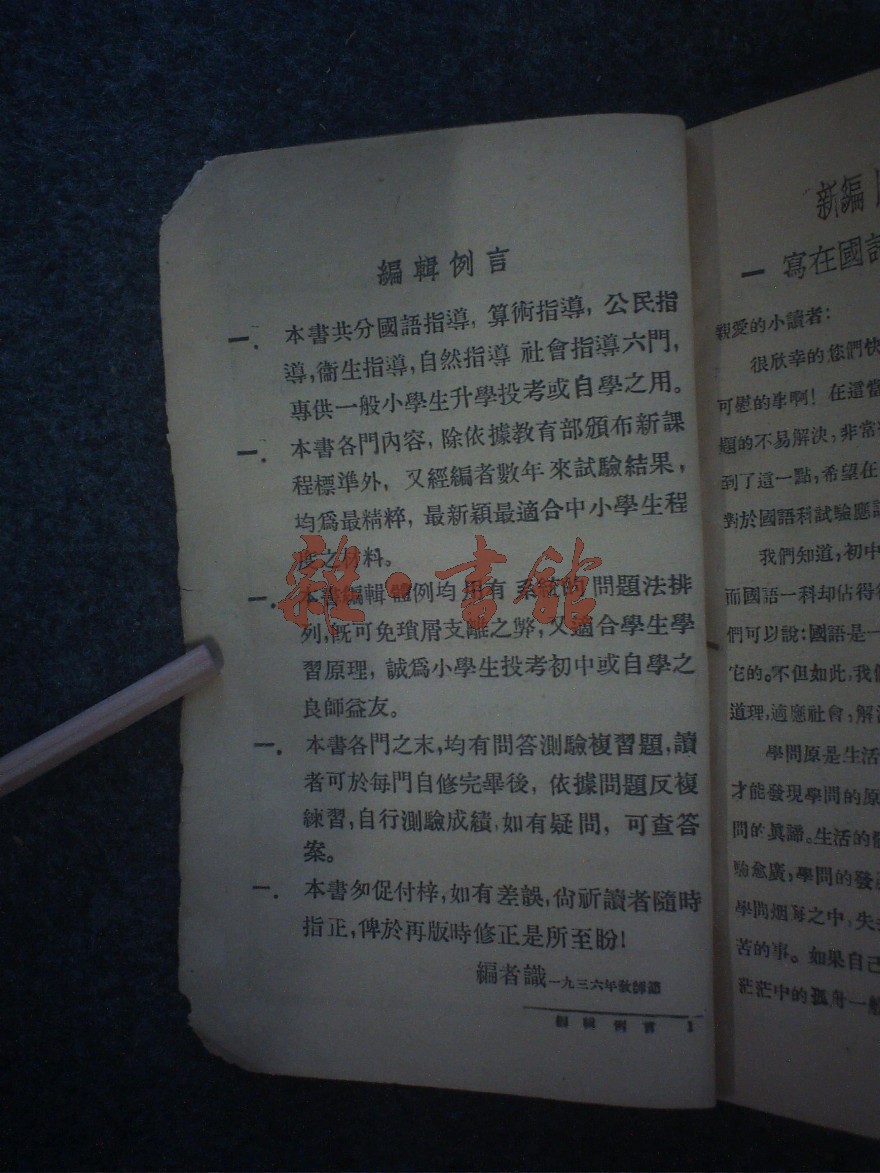 編輯例言
一. 本書共分國語指導, 算術指導, 公民指
導,衞生指導,自然指導 社會指導六門,
專供一般小學生升學投考或自學之用。
一. 本書各門內容, 除依據教育部頒布新課
程標準外, 又經編者數年來試驗結果,
均爲最精粹, 最新穎最適合中小學生程
度之材料。
一. 本書編輯體例均用有系統的問題法排
列,旣可免瑣屑支離之弊,又適合學生學
習原理, 誠爲小學生投考初中或自學之
良師益友。
一. 本書各門之末,均有問答測驗複習題,讀
者可於每門自修完畢後, 依據問題反複
練習,自行測驗成績,如有疑問, 可查答
案。
一. 本書匆促付梓,如有差誤,尙祈讀者隨時
指正,俾於再版時修正是所至盼!
編者識 一九三六年教師節
編輯例言 1
雜·書館
新編
一 寫在國語
親愛的小讀者:
很欣幸的您們快
可慰的事啊! 在這當
題的不易解決,非常
到了這一點,希望在
對於國語科試驗應
我們知道,初中
而國語一科却佔得
們可以說:國語是一
它的。不但如此,我們
道理,適應社會,解
學問原是生活
才能發現學問的原
問的眞諦。生活的
驗愈廣,學問的發
學問烟海之中,失
苦的事。如果自己
茫茫中的孤舟一般